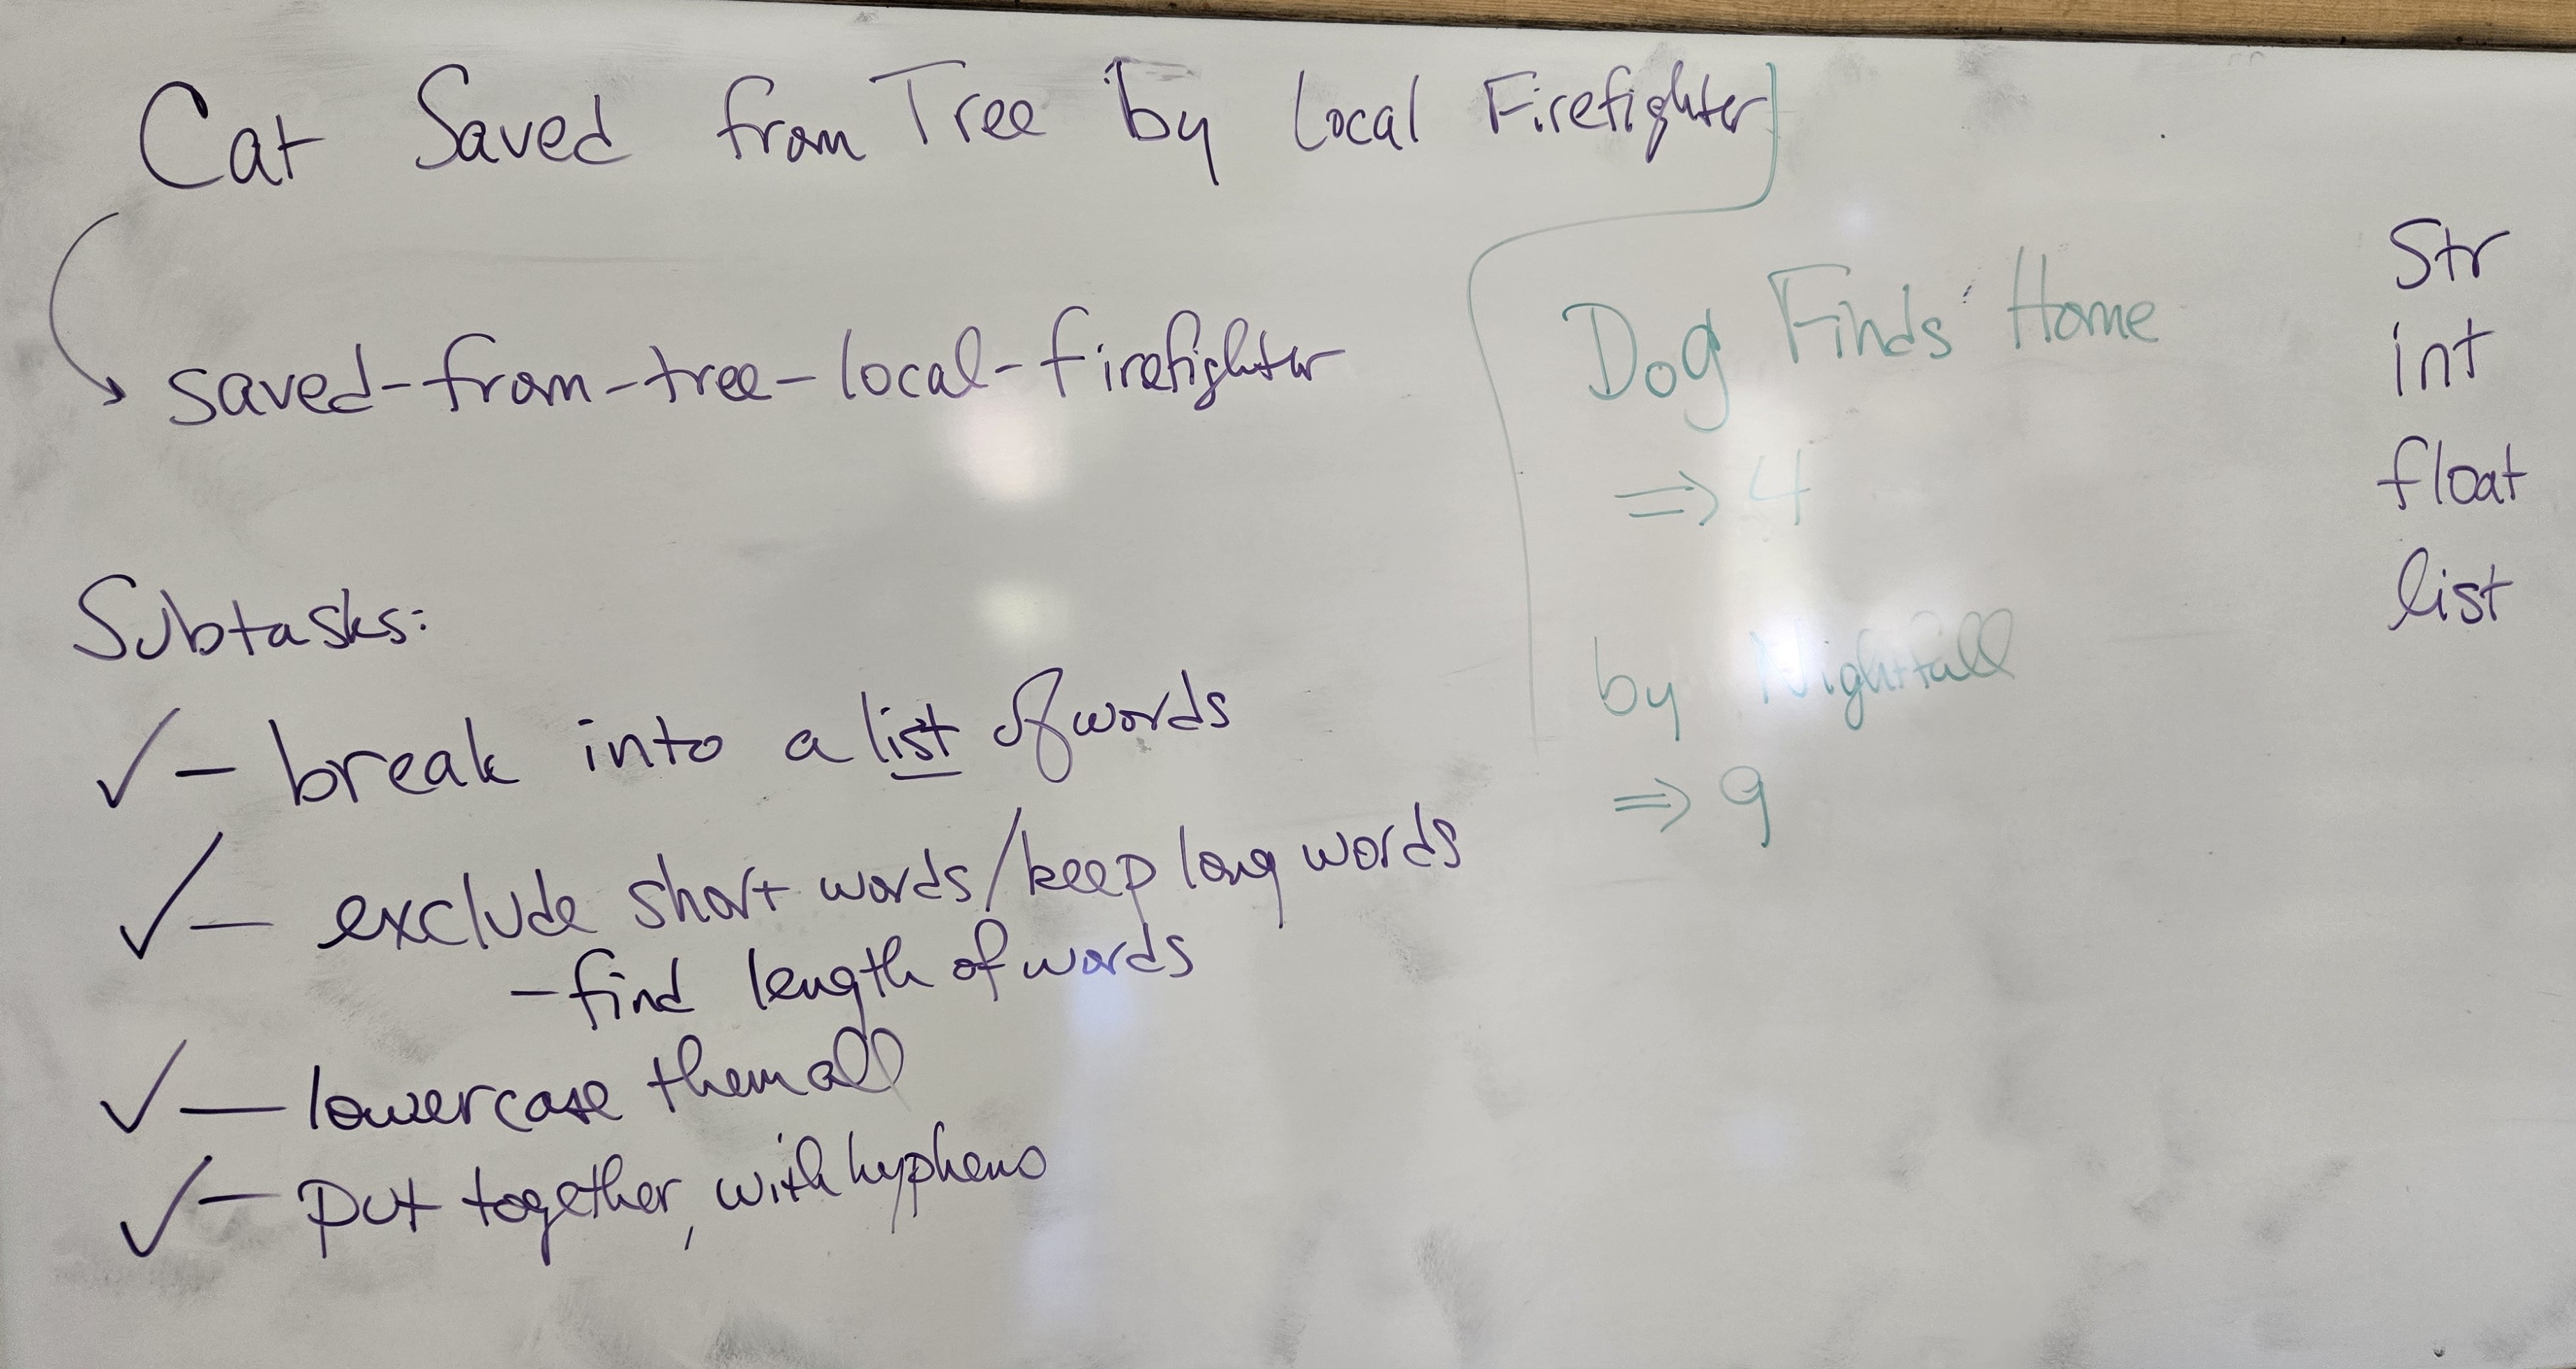 Cat Saved from Tree by Local Firefighter
saved-from-tree-local-firefighter
Subtasks:
✓ - break into a list of words
✓ - exclude short words/keep long words
- find length of words
✓ - lowercase them all
✓ - put together, with hyphens
Dog Finds Home
=> 4
by Nightfall
=> 9
Str
int
float
list